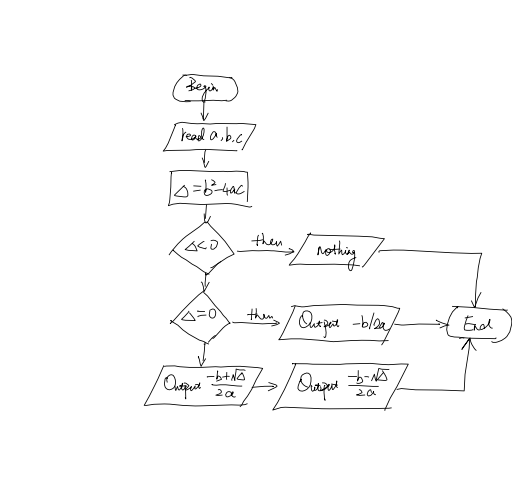 Begin
read a, b, c
Δ=b²-4ac
Δ<0
then
nothing
Δ=0
then
Output -b/2a
End
Output (-b+√Δ)/2a
Output (-b-√Δ)/2a